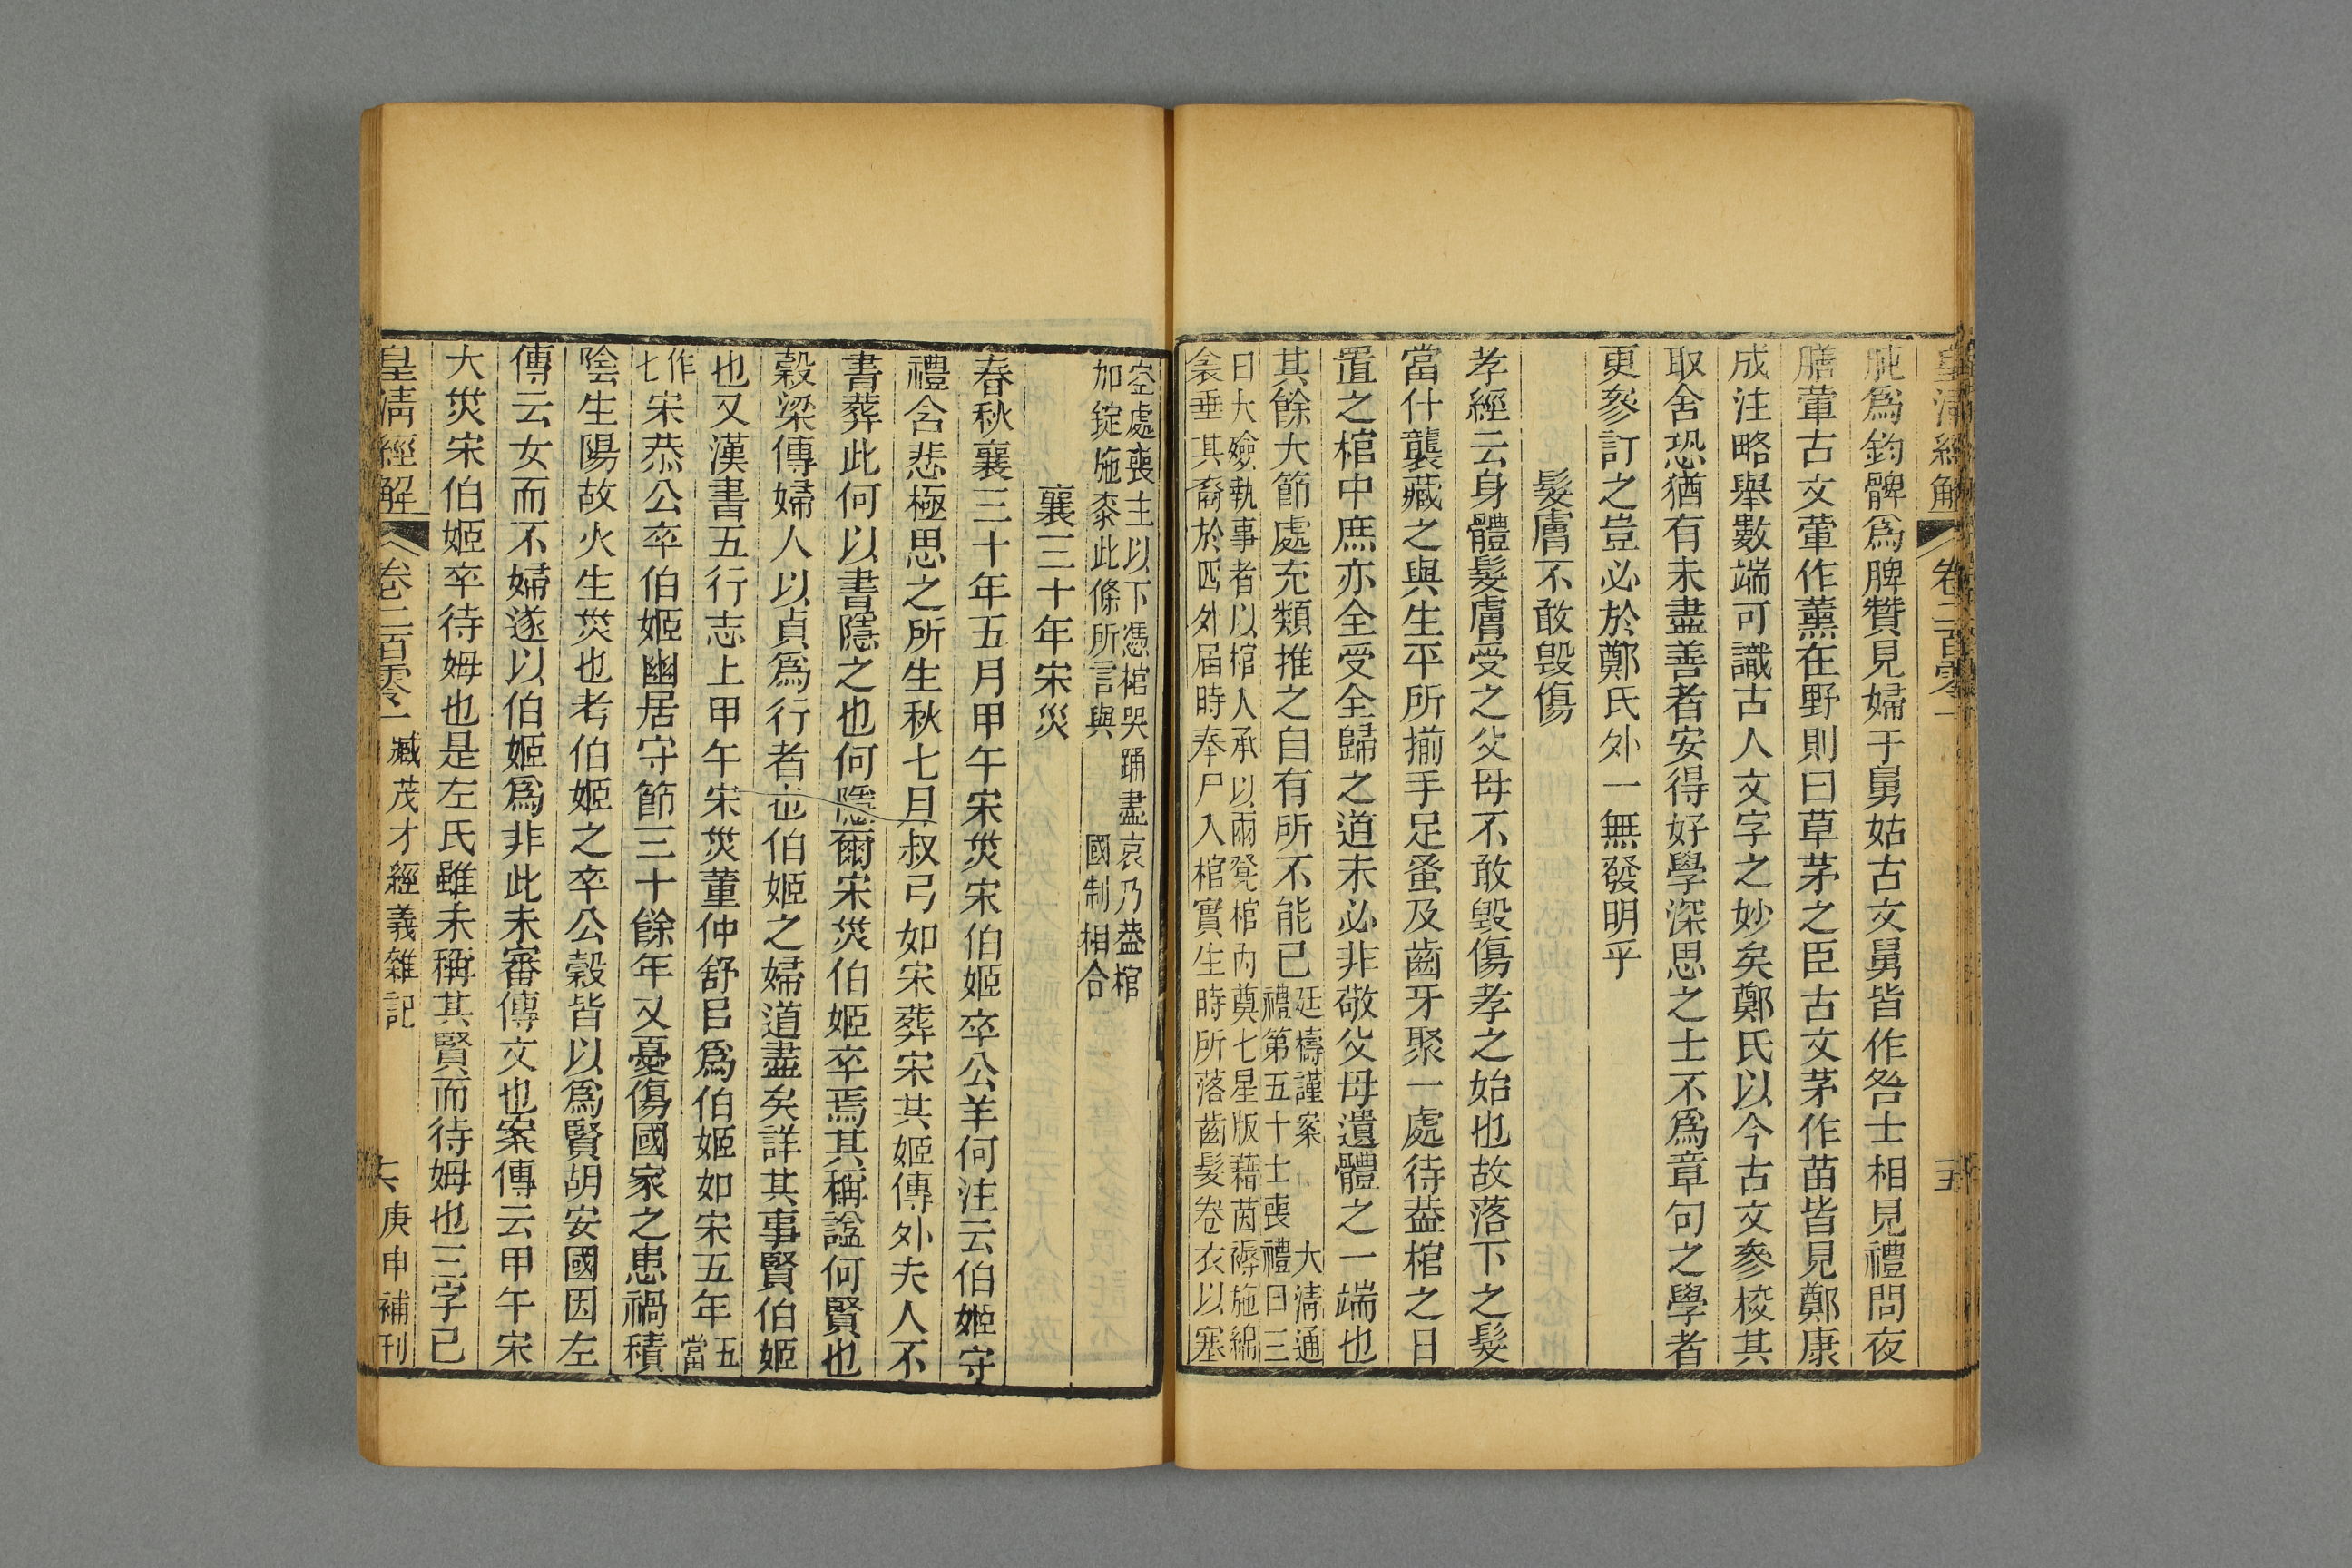 皇清經解 卷二百零一 十五
肫爲鈞髀爲脾贊見婦于舅姑古文舅皆作咎士相見禮問夜
膳葷古文葷作薰在野則曰草茅之臣古文茅作苗皆見鄭康
成注略舉數端可識古人文字之妙矣鄭氏以今古文參校其
取舍恐猶有未盡善者安得好學深思之士不爲章句之學者
更參訂之豈必於鄭氏外一無發明乎
髮膚不敢毀傷
孝經云身體髮膚受之父母不敢毀傷孝之始也故落下之髮
當什襲藏之與生平所揃手足蚤及齒牙聚一處待葢棺之日
置之棺中庶亦全受全歸之道未必非敬父母遺體之一端也
其餘大節處充類推之自有所不能已廷檮謹案 大清通
禮第五十士喪禮曰三
日大斂執事者以棺入承以兩凳棺內奠七星版藉茵褥施綿
衾垂其裔於四外屆時奉尸入棺實生時所落齒髮卷衣以塞
空處喪主以下憑棺哭踊盡哀乃葢棺
加錠施桼此條所言與 國制相合
襄三十年宋災
春秋襄三十年五月甲午宋災宋伯姬卒公羊何注云伯姬守
禮含悲極思之所生秋七月叔弓如宋葬宋共姬傳外夫人不
書葬此何以書隱之也何隱爾宋災伯姬卒焉其稱諡何賢也
穀梁傳婦人以貞爲行者也伯姬之婦道盡矣詳其事賢伯姬
也又漢書五行志上甲午宋災董仲舒㠯爲伯姬如宋五年五當
作七宋恭公卒伯姬幽居守節三十餘年又憂傷國家之患禍積
陰生陽故火生災也考伯姬之卒公穀皆以爲賢胡安國因左
傳云女而不婦遂以伯姬爲非此未審傳文也案傳云甲午宋
大災宋伯姬卒待姆也是左氏雖未稱其賢而待姆也三字已
皇清經解 卷二百零一 臧茂才經義雜記 六 庚申補刊